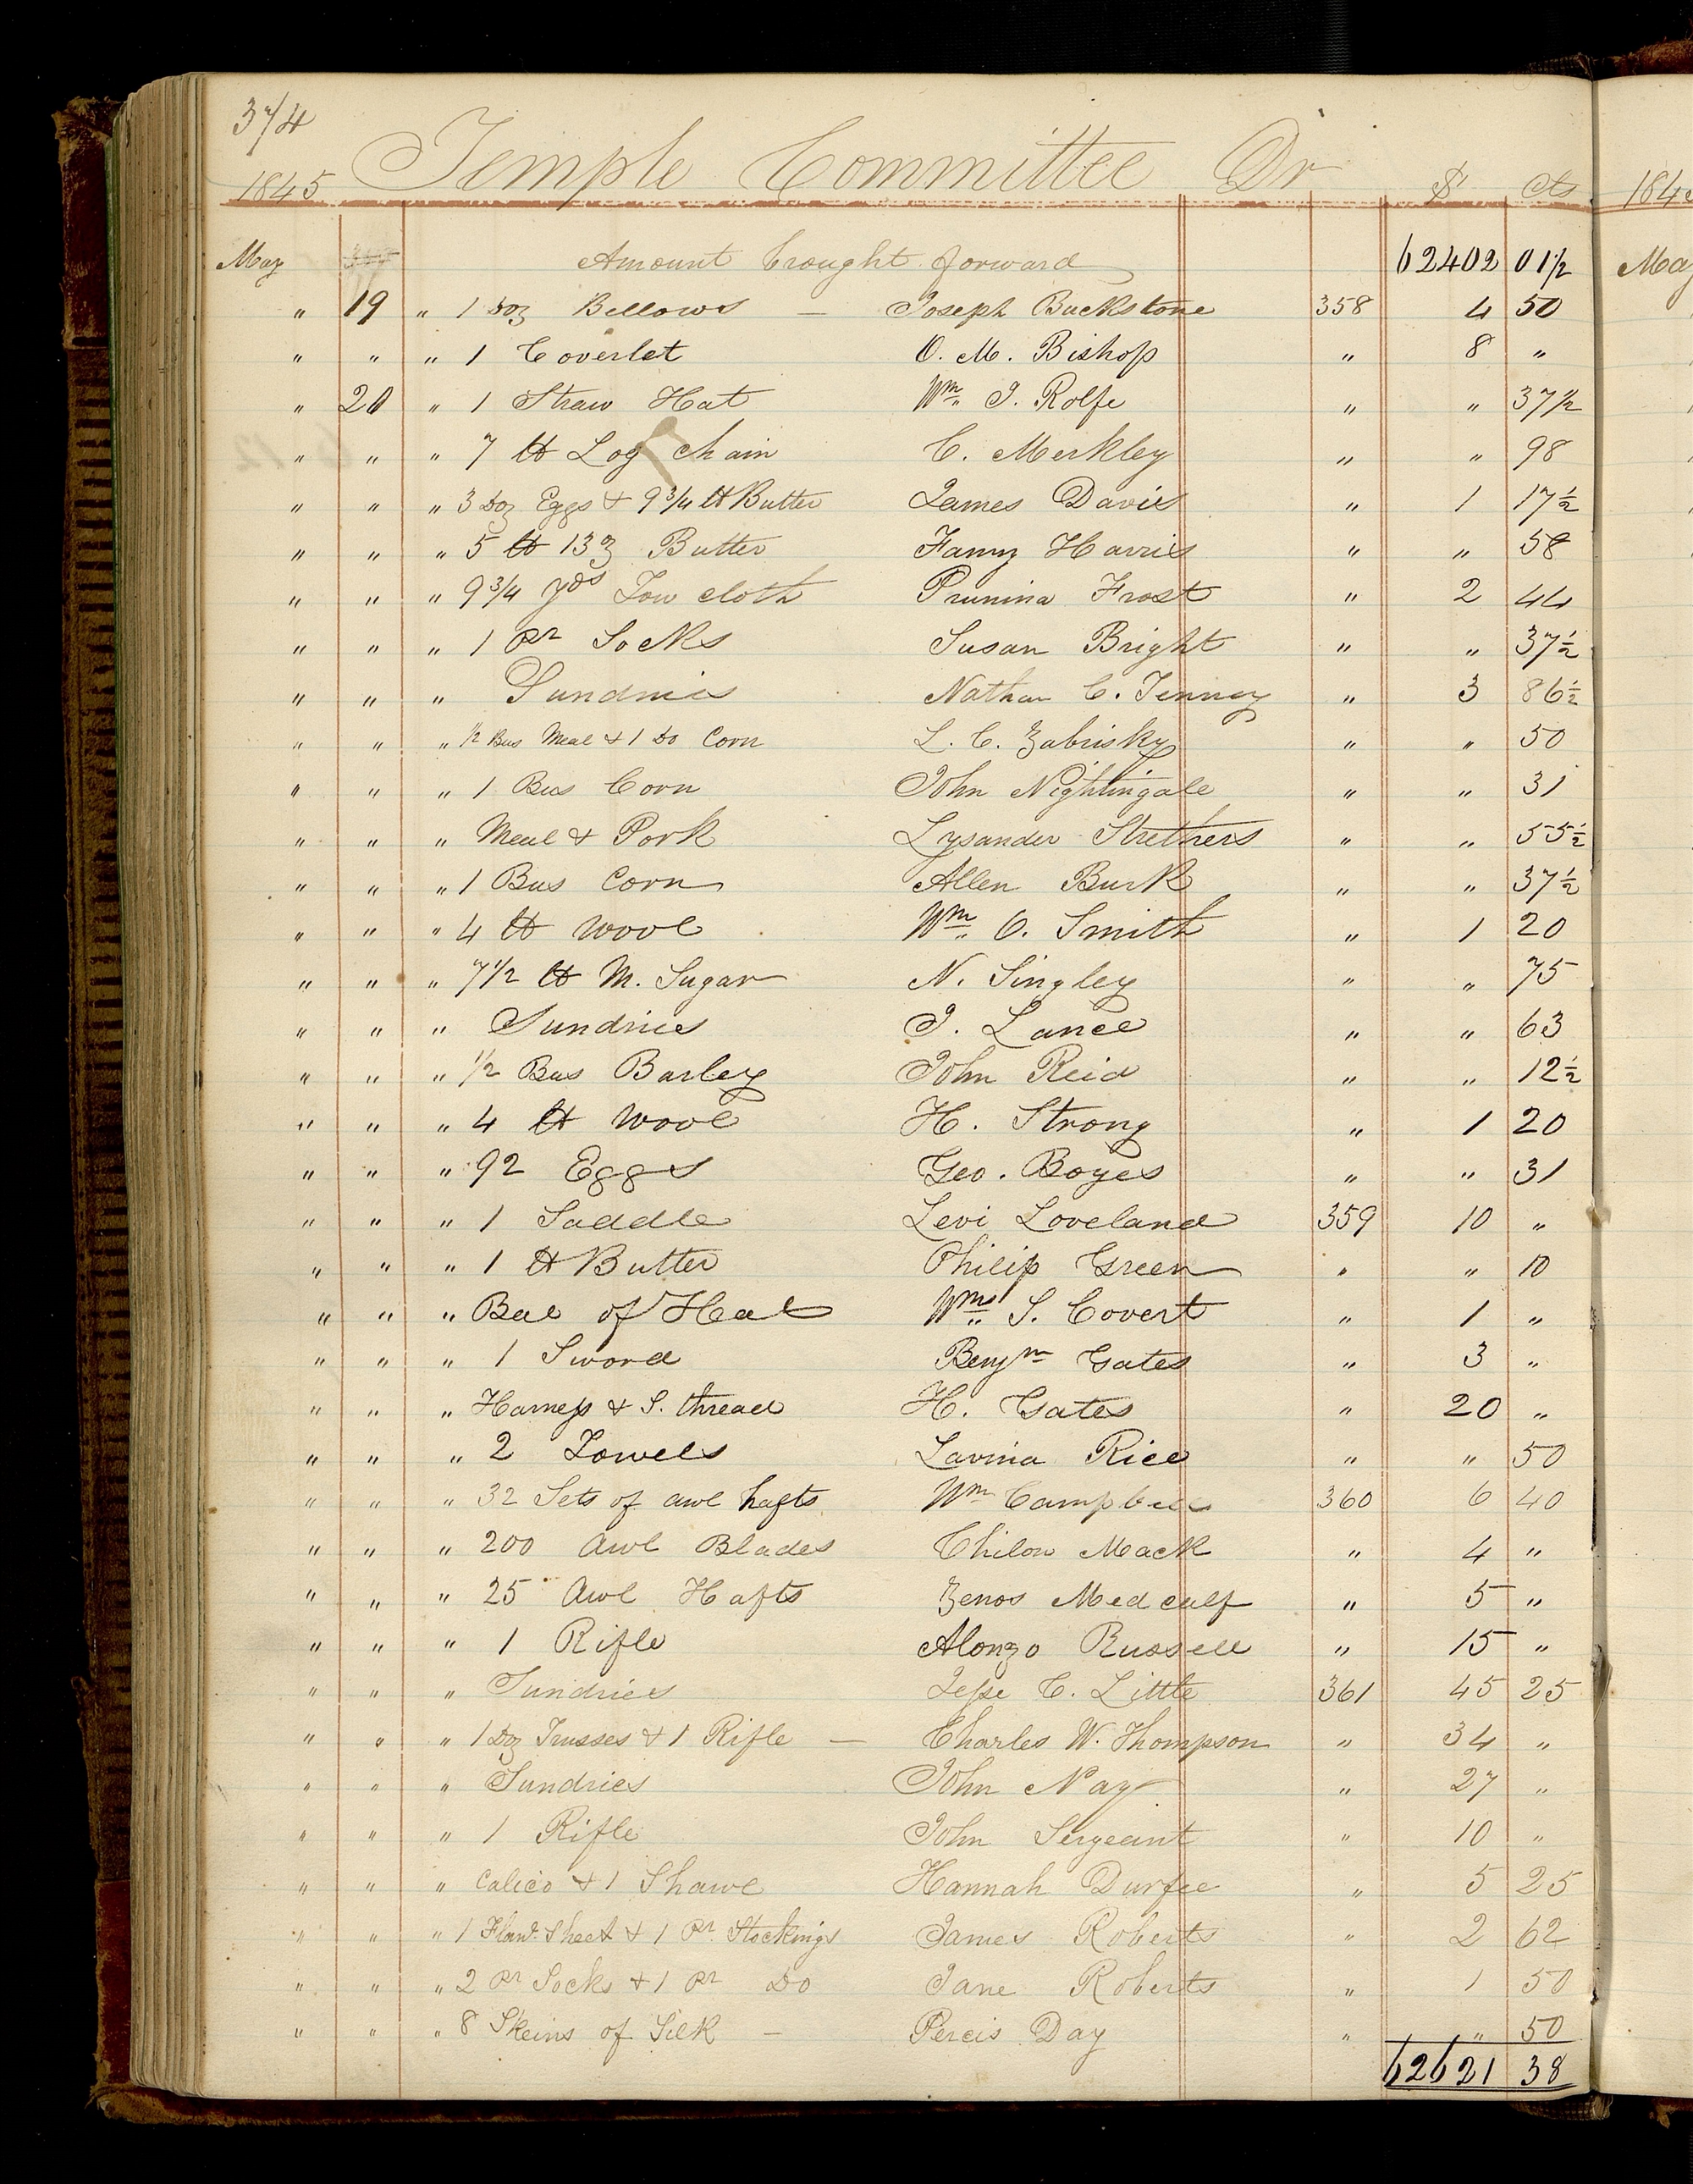 374
1845 Temple Committee Dr $ cts
May Amount brought forward 62402 01 1/2
" 19 " 1 Doz Bellows — Joseph Buckstone 358 4 50
" " " 1 Coverlet O. M. Bishop " 8 "
" 20 " 1 Straw Hat Wm. J. Rolfe " " 37 1/2
" " " 7 lb Log chain C. Merkley " " 98
" " " 3 Doz Eggs & 9 3/4 lb Butter James Davis " 1 17 1/2
" " " 5 lb 13 oz Butter Fanny Harris " " 58
" " " 9 3/4 yds Tow cloth Prunina Frost " 2 44
" " " 1 Pr Socks Susan Bright " " 37 1/2
" " " Sundries Nathan C. Tenney " 3 86 1/2
" " " 1/2 Bus Meal & 1 Do Corn L. C. Zabrisky " " 50
" " " 1 Bus Corn John Nightingale " " 31
" " " Meal & Pork Lysander Strethers " " 55 1/2
" " " 1 Bus Corn Allen Burk " " 37 1/2
" " " 4 lb Wool Wm. O. Smith " 1 20
" " " 7 1/2 lb M. Sugar N. Singley " " 75
" " " Sundries J. Lance " " 63
" " " 1/2 Bus Barley John Reid " " 12 1/2
" " " 4 lb Wool H. Strong " 1 20
" " " 92 Eggs Geo. Boyes " " 31
" " " 1 Saddle Levi Loveland 359 10 "
" " " 1 lb Butter Philip Green " " 10
" " " Bal of Hat Wm. S. Covert " 1 "
" " " 1 Sword Benjn Gates " 3 "
" " " Harness & S. thread H. Gates " 20 "
" " " 2 Towels Lavina Rice " " 50
" " " 32 Sets of awl hafts Wm Campbell 360 6 40
" " " 200 Awl Blades Chilon Mack " 4 "
" " " 25 Awl Hafts Zenos Medcalf " 5 "
" " " 1 Rifle Alonzo Russell " 15 "
" " " Sundries Jesse C. Little 361 45 25
" " " 1 Doz Trusses & 1 Rifle — Charles W. Thompson " 34 "
" " " Sundries John Nay " 27 "
" " " 1 Rifle John Sergeant " 10 "
" " " Calico & 1 Shawl Hannah Durfee " 5 25
" " " 1 Flanl. Sheet & 1 Pr. Stockings James Roberts " 2 62
" " " 2 Pr Socks & 1 Pr Do Jane Roberts " 1 50
" " " 8 Skeins of Silk — Percis Day " " 50
62621 38
184
May